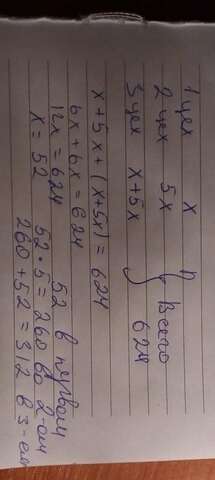 1 цех x
2 цех 5x } Всего 624
3 цех x+5x
x+5x+(x+5x)=624
6x+6x=624
12x=624 52 в первом
x=52 52·5=260 во 2-ом
260+52=312 в 3-ем